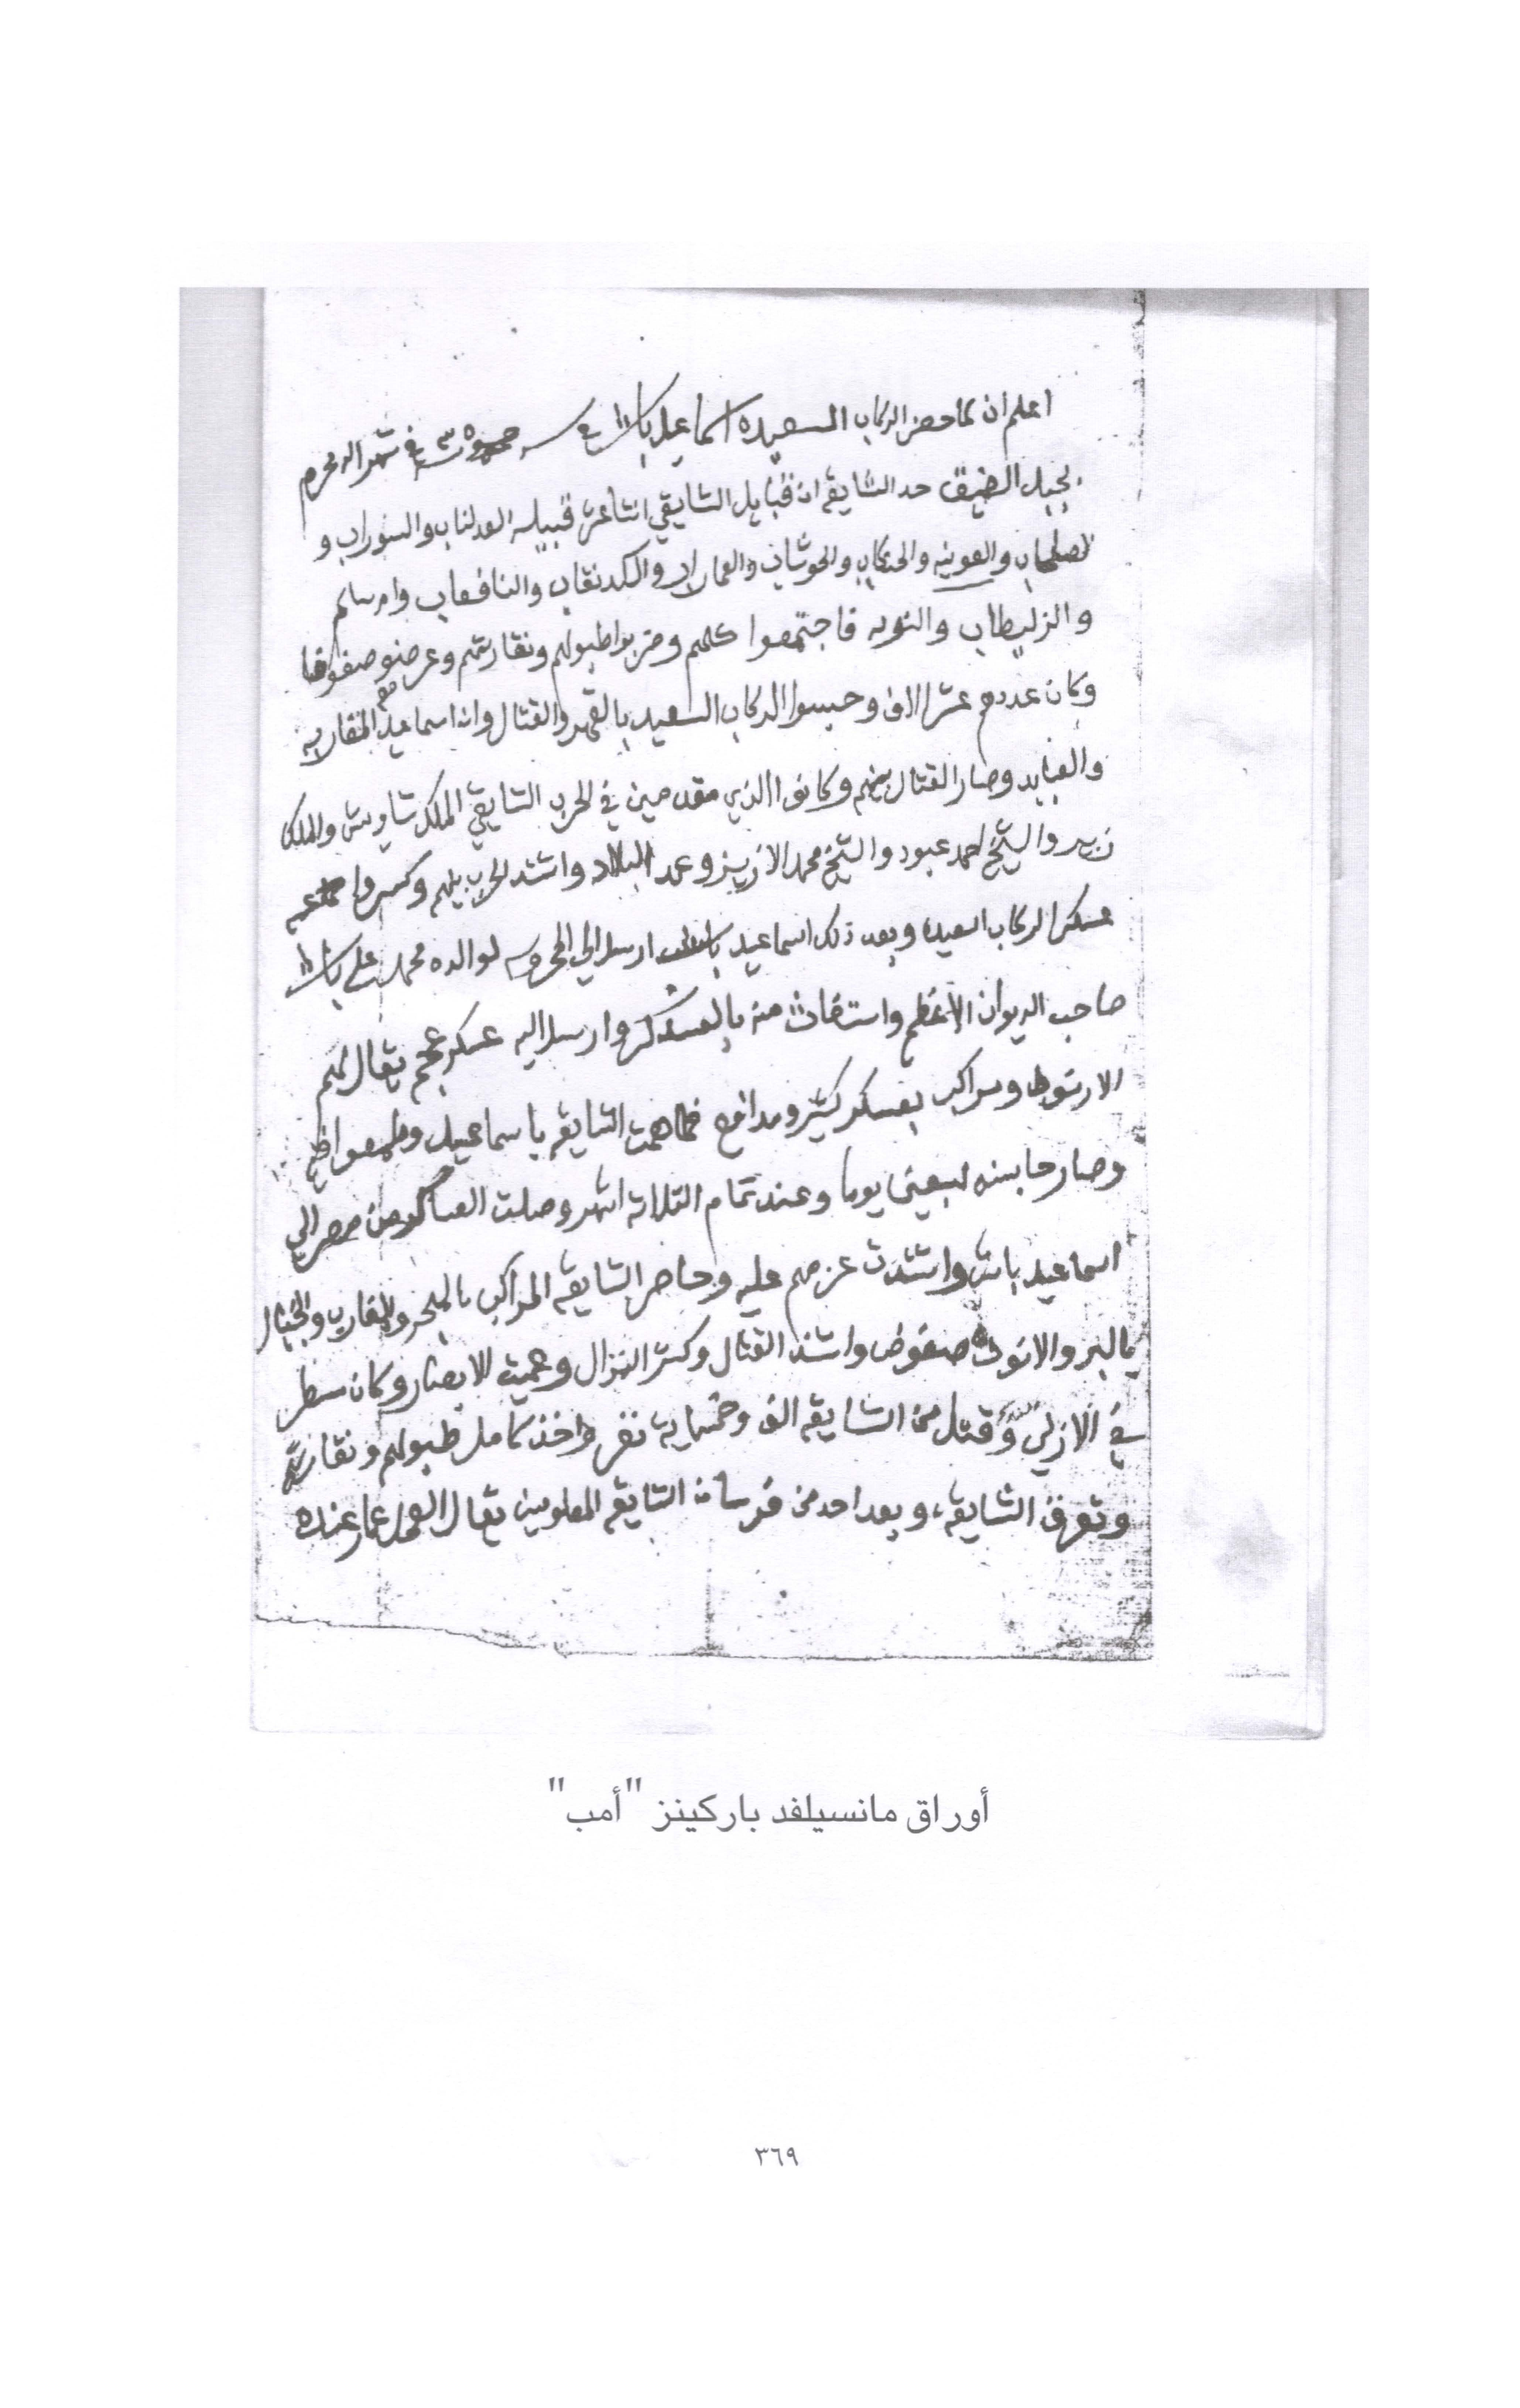 اعلم ان لما حضر الركاب السعيده اسماعيل باشا في سنه في شهر الله محرم
بجبل الضيق حد الشايقيه ان قبايل الشايقي اثنا عشر قبيله العدلناب والسوراب و
الصلحاب والعونيه والحنكاب والحوشاب والعمراب والكدنقاب والنافعاب وام سالم
والزليطاب والنوبه فاجتمعوا كلهم وضربوا طبولهم ونقارتهم وعرضو صفوفها
وكان عددهم عشر الاف وحبسوا الركاب السعيد بالقهر والقتال وان اسماعيل معه المغاربه
والعبابده وصار القتال بينهم وكانوا الذي مقدمين في الحرب الشايقي الملك شاويش والملك
زبير والشيخ احمد عبود والشيخ محمد الازيرز وعمد البلاد واشتد الحرب بينهم وكسروا
عسكر الركاب السعيده وبعد ذلك اسماعيل ارسل الي المحروسه لوالده محمد علي باشا
صاحب الديوان الاعظم واستغاث منه بالعسكر وارسل اليه عسكر عجم يقال لهم
الارنوط ومراكب بعسكر كثير ومدافع فما همت الشايقيه باسماعيل وطمعوا فيه
وصار حابسنه سبعين يوما وعند تمام الثلاثه اشهر وصلت العساكر من مصر الي
اسماعيل باشا واشتدت عزمهم عليه وحاصر الشايقيه المراكب بالبحر والمغاربه والخيال
بالبر والارنوط صفوف واشتد القتال وكثر النزال وعميت الابصار وكان سطر
في الازلي وقتل من الشايقيه الف وخمسمايه نفر واخذ كامل طبولهم ونقارتهم
وتفرق الشايقيه، وبعد احد من فرسان الشايقيه المعلومين يقال العمر عمار عنده
أوراق مانسيلفد باركينز "أمب"
٣٦٩